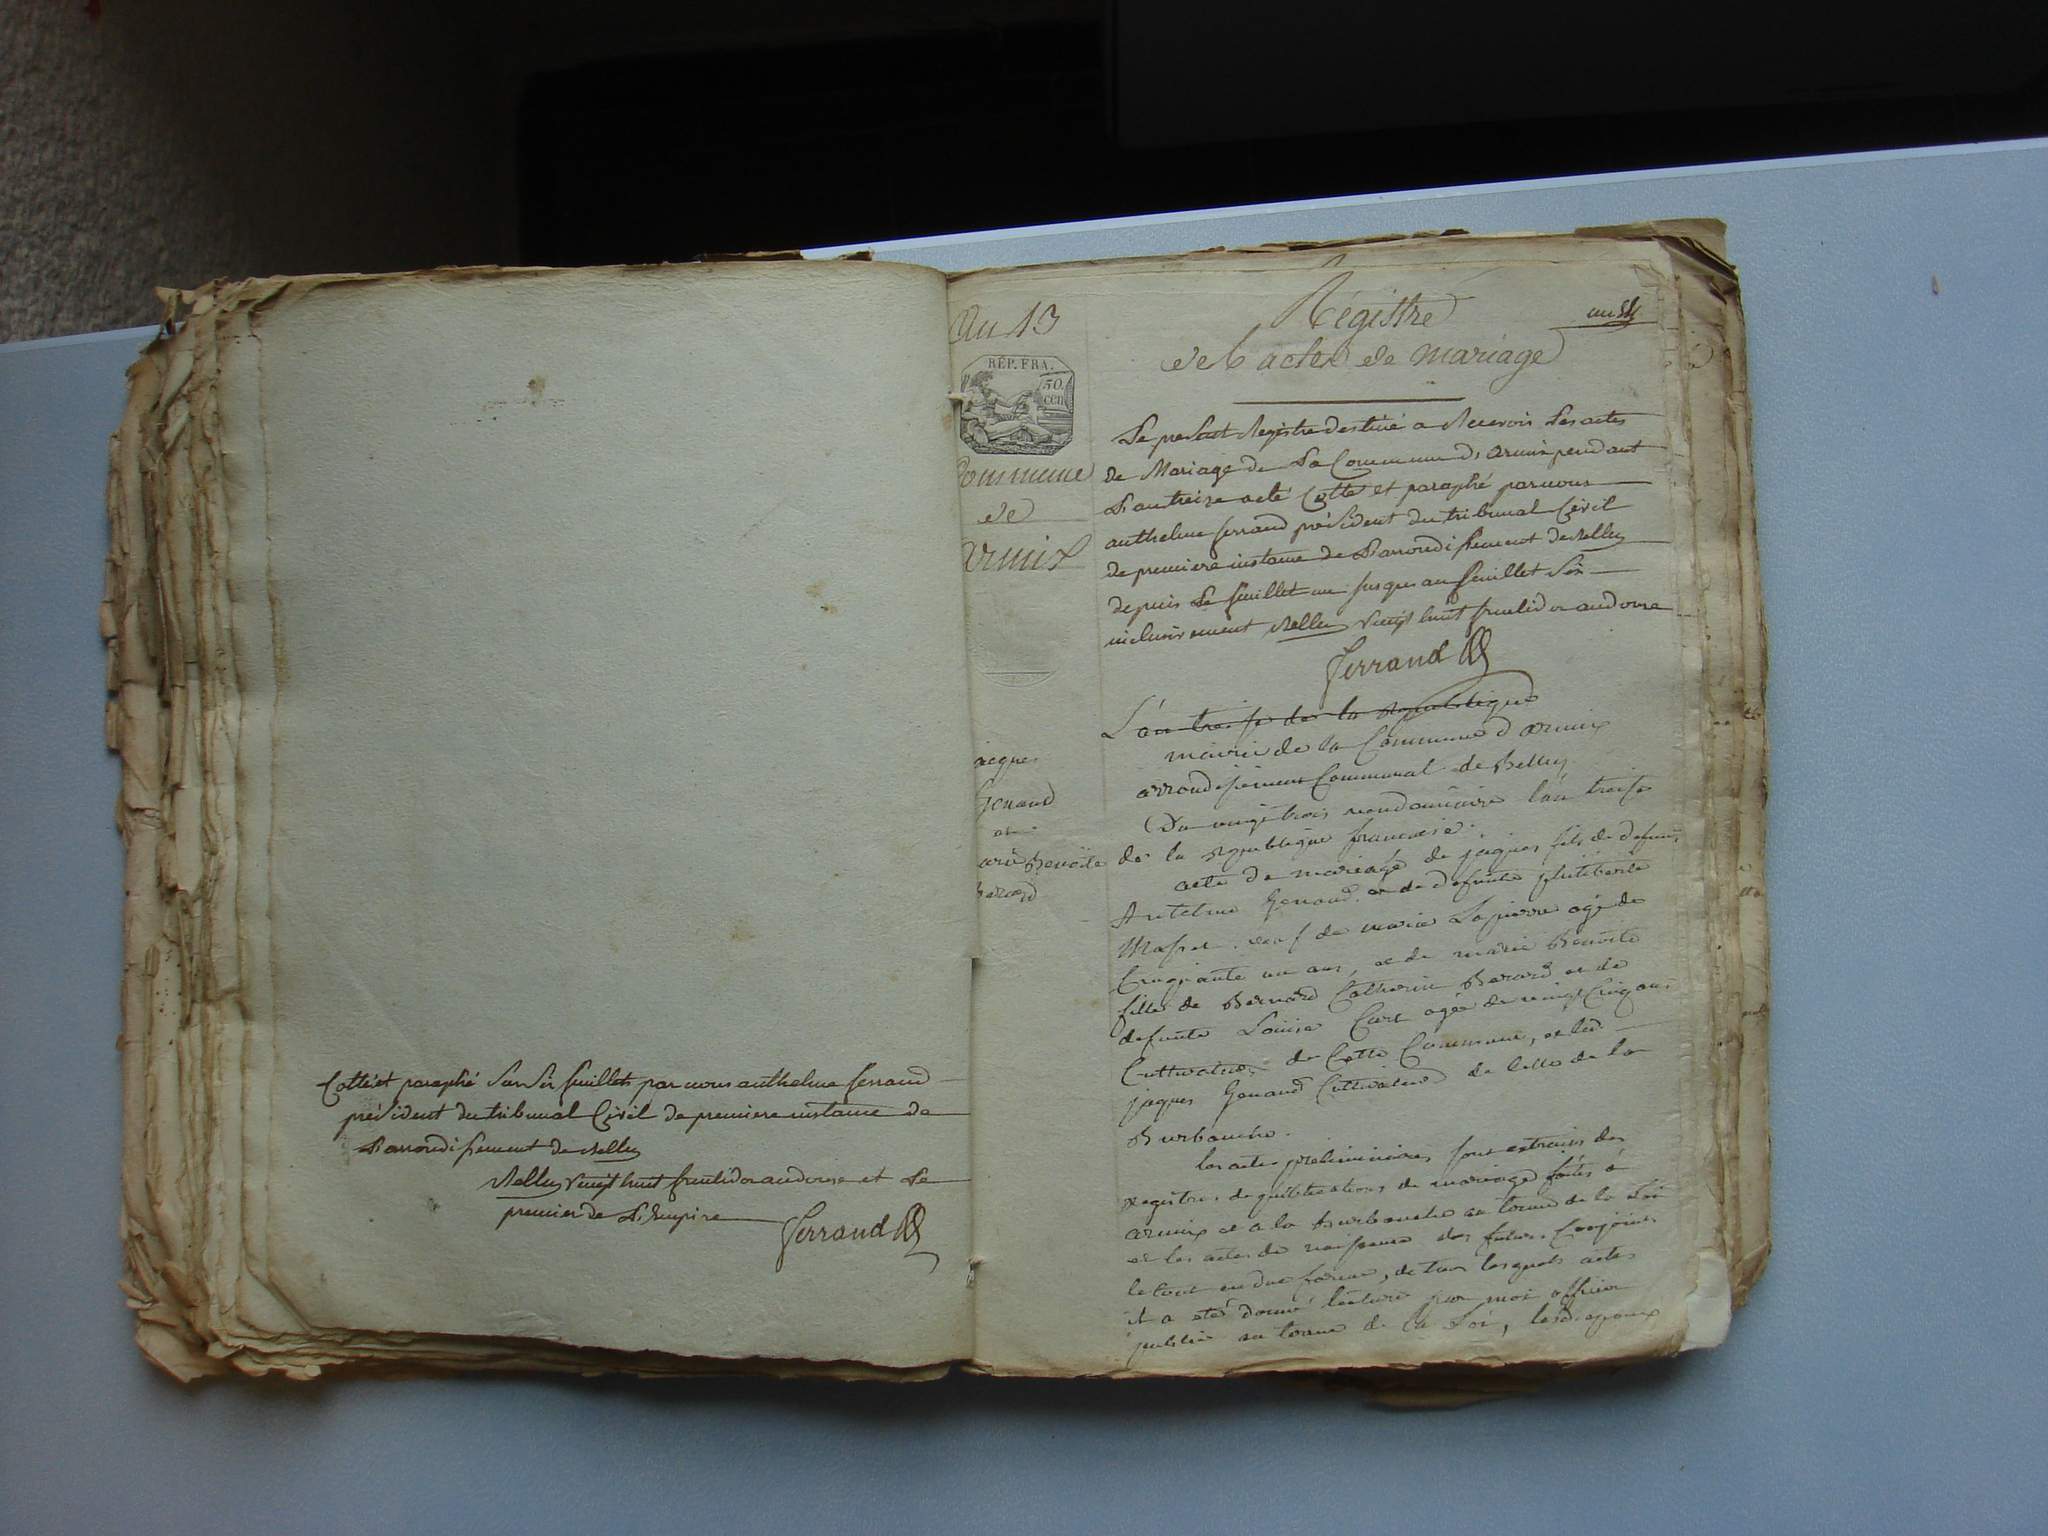 Cotté et paraphé sur six feuillets par nous anthelme ferrand
président du tribunal Civil de premiere instance de
L'arrondissement de Belley
Belley vingt huit fructidor an douze et Le
premier de L'Empire
ferrand
An 13
RÉP. FRA.
50.
cen
Commune
de
Armix
acques
Genand
et
arie Benoite
Berard
Régistre
des actes de mariage
Le present Registre destiné a Recevoir Les actes
de Mariage de La Commune d'armix pendant
L'an treize a eté Cotté et paraphé par nous
anthelme ferrand président du tribunal Civil
de premiere instance de L'arrondissement de Belley
depuis Le feuillet un jusques au feuillet Six
inclusivement Belley vingt huit fructidor an douze
ferrand
L'an treise de la republique
mairie de la Commune d armix
arrondissement Communal de Belley
Du vingt trois vendemiaire l'an treise
de la republique francaise.
acte de mariage de jaques fils de defunt
Antelme Genand et de defunte philiberte
veuf de marie Lapierre agé de
Cinquante un ans, et de marie Benoite
fille de Bernard Catherin Berard et de
defunte Louise Cart agée de vingt Cinq ans
Cultivateur de Cette Commune, et led.
jaques Genand Cultivateur de celle de la
Burbanche.
les actes preliminaires sont extraits des
registres de publications de mariage faites à
armix et a la Burbanche au terme de la Loi
et les actes de naissance des futurs Conjoints
le tout en due forme, de tous lesquels actes
il a eté donné lecture par moi officier
public au terme de la Loi, lesd. epoux